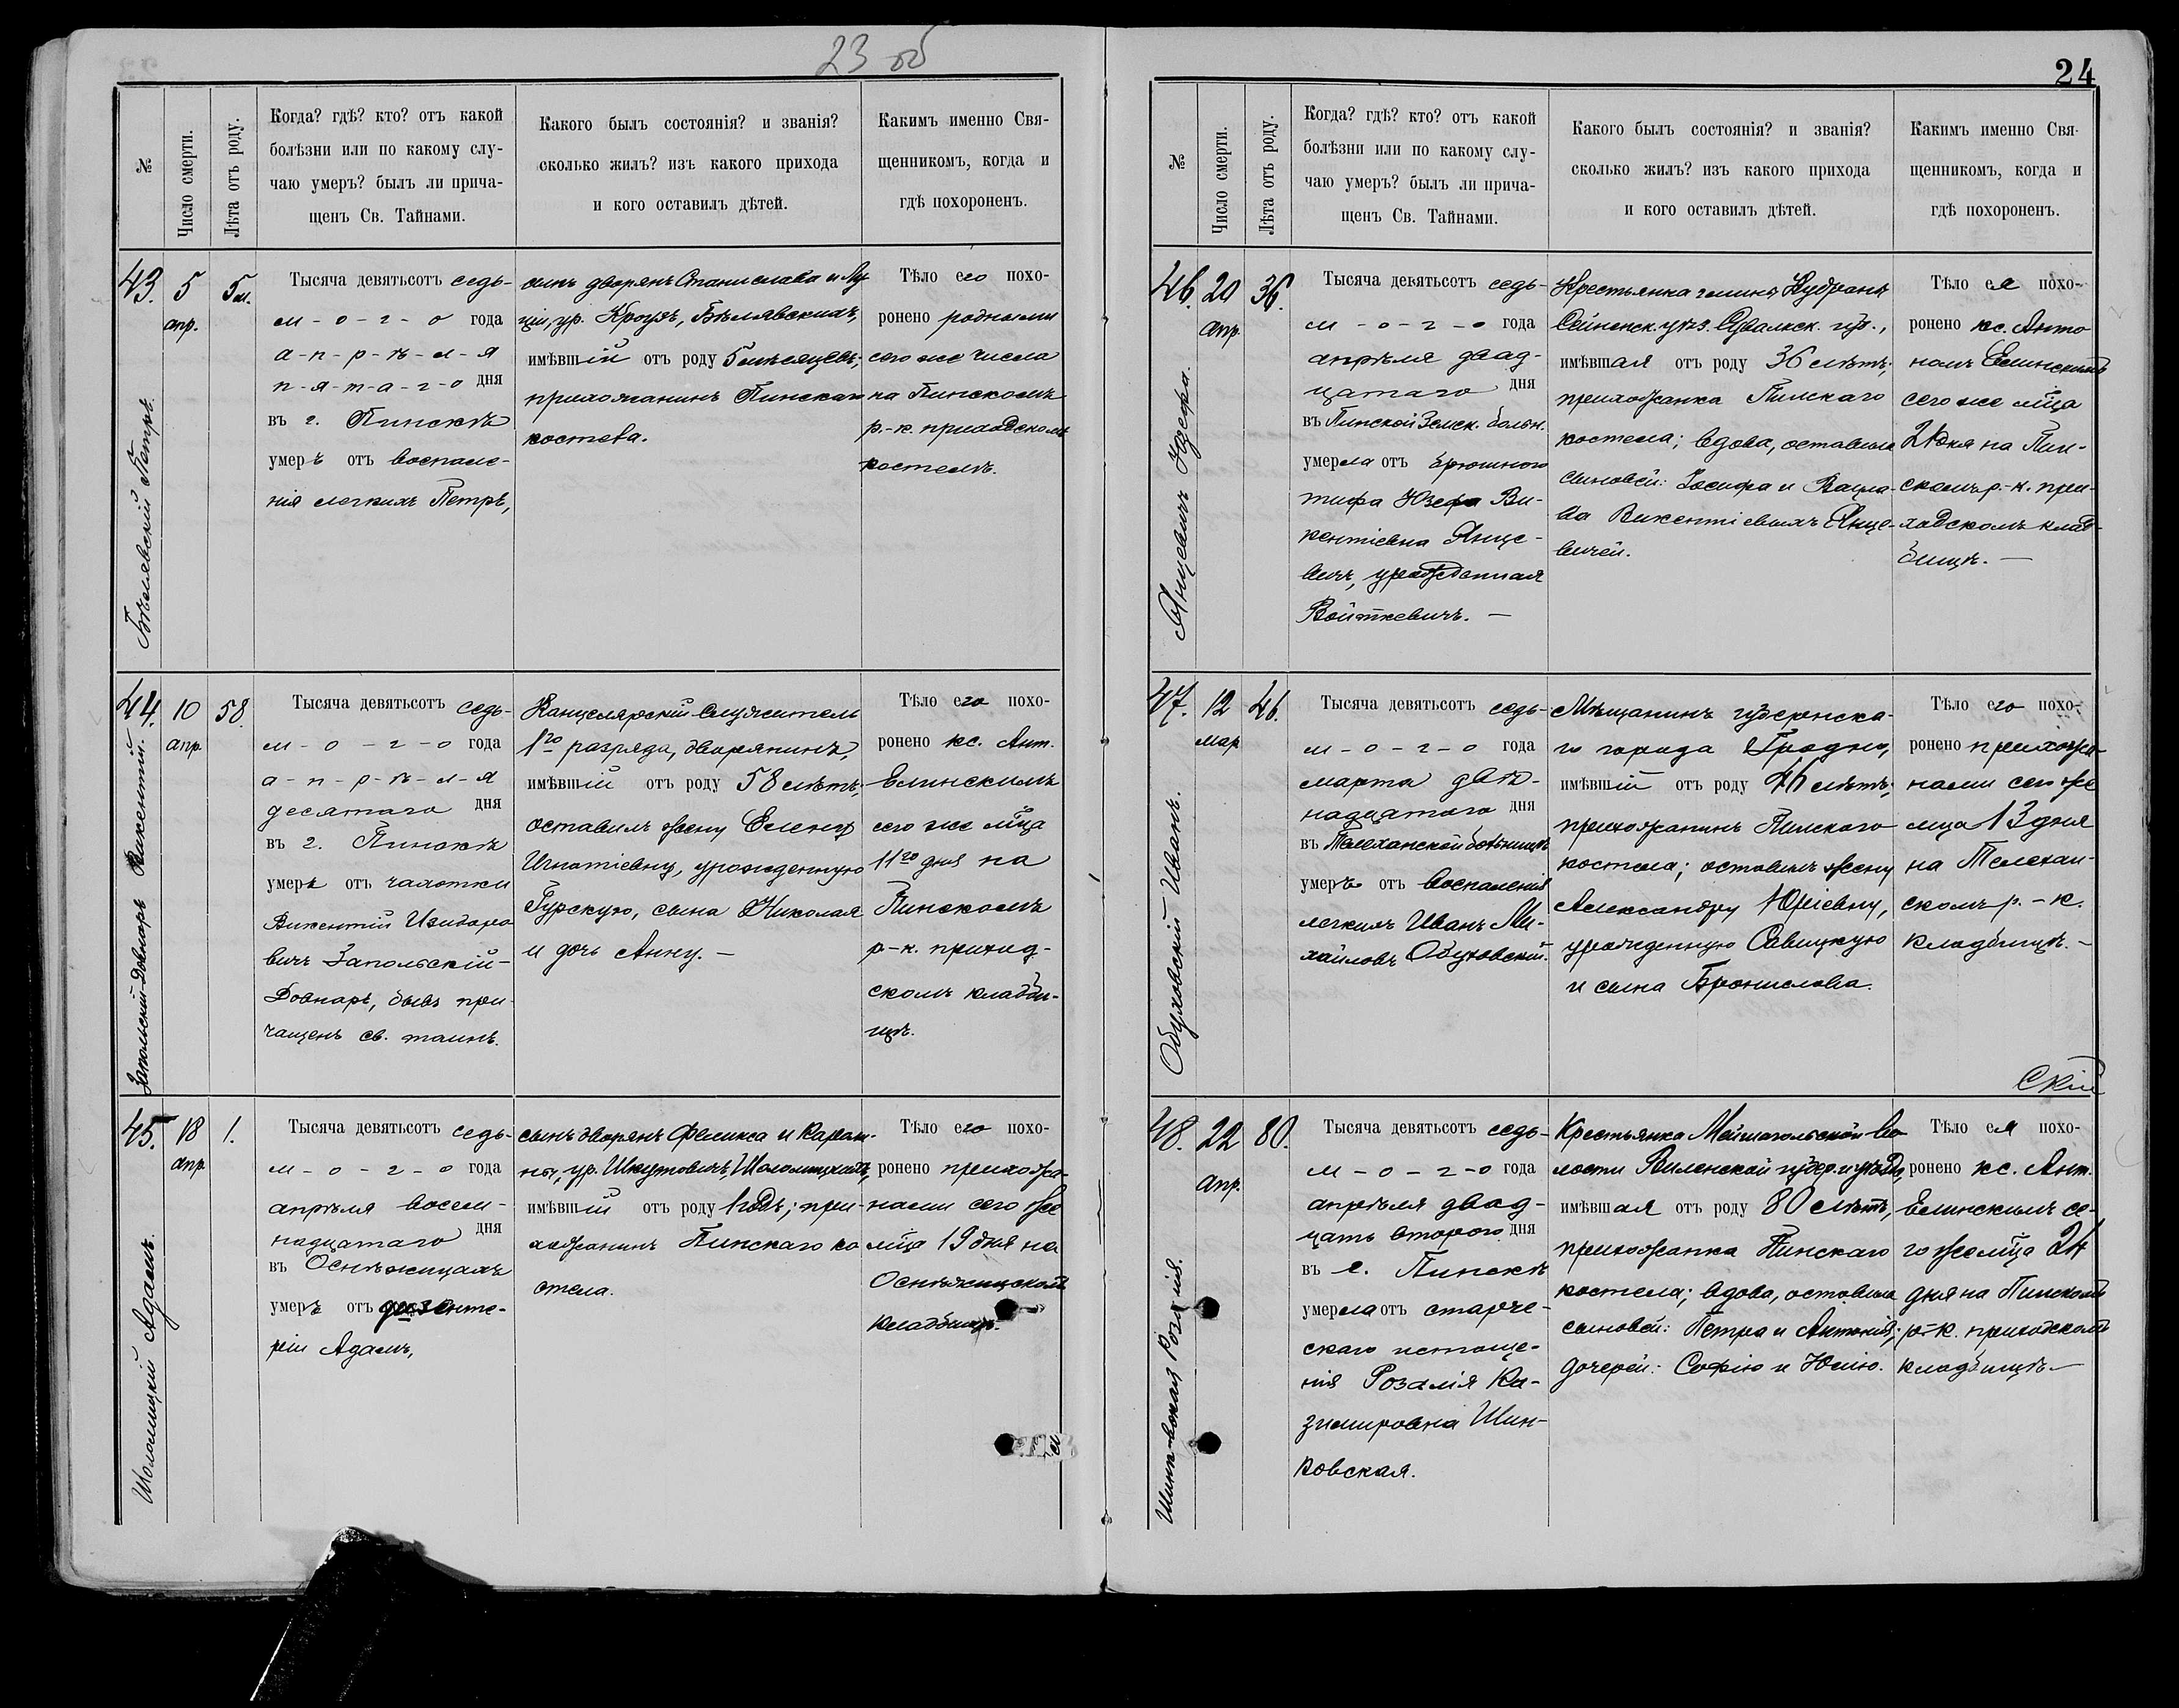 23 об
№
Число смерти.
Лѣта отъ роду.
Когда? гдѣ? кто? отъ какой
болѣзни или по какому слу-
чаю умеръ? былъ ли прича-
щенъ Св. Тайнами.
Какого былъ состоянія? и званія?
сколько жилъ? изъ какого прихода
и кого оставилъ дѣтей.
Какимъ именно Свя-
щенникомъ, когда и
гдѣ похороненъ.
43.
Бѣлявскій Петръ.
5
апр.
5 м.
Тысяча девятьсотъ седь-
м-о-г-о года
а-п-р-ѣ-л-я
п-я-т-а-г-о дня
въ г. Пинскѣ
умеръ отъ воспале-
нія легкихъ Петръ,
сынъ дворянъ Станислава и Лу
ціи, ур. Кроузъ, Бѣлявскихъ,
имѣвшій отъ роду 5 мѣсяцевъ;
прихожанинъ Пинскаго
костела.
Тѣло его похо-
ронено родными
сего же числа
на Пинскомъ
р.-к. приходскомъ
костелѣ.
44.
Запольскій-Довнаръ Викентій.
10
апр.
58.
Тысяча девятьсотъ седь-
м-о-г-о года
а-п-р-ѣ-л-я
десятаго дня
въ г. Пинскѣ
умеръ отъ чахотки
Викентій Изидоро
вичъ Запольскій-
Довнаръ, бывъ при-
чащенъ св. таинъ.
Канцелярскій служитель
1го разряда, дворянинъ,
имѣвшій отъ роду 58 лѣтъ;
оставилъ жену Елену
Игнатіевну, урожденную
Гурскую, сына Николая
и дочь Анну. —
Тѣло его похо-
ронено кс. Ант.
Елинскимъ
сего же мца
11го дня на
Пинскомъ
р-к. приход-
скомъ кладби-
щѣ.
45.
Шоломицкій Адамъ.
18
апр
1.
Тысяча девятьсотъ седь-
м-о-г-о года
апрѣля восем-
надцатаго дня
въ Оснѣжицахъ
умеръ отъ дизенте-
ріи Адамъ,
сынъ дворянъ Феликса и Карали-
ны, ур. Шкутовичъ, Шоломицкихъ,
имѣвшій отъ роду 1 годъ; при-
хожанинъ Пинскаго ко
стела.
Тѣло его похо-
ронено прихожа-
нами сего же
мца 19 дня на
Оснѣжицскомъ
кладбищѣ.
24
№
Число смерти.
Лѣта отъ роду.
Когда? гдѣ? кто? отъ какой
болѣзни или по какому слу-
чаю умеръ? былъ ли прича-
щенъ Св. Тайнами.
Какого былъ состоянія? и званія?
сколько жилъ? изъ какого прихода
и кого оставилъ дѣтей.
Какимъ именно Свя-
щенникомъ, когда и
гдѣ похороненъ.
46.
Янцевичъ Юзефа.
20
апр.
36.
Тысяча девятьсотъ седь-
м-о-г-о года
апрѣля двад-
цатаго дня
въ Пинской Земск. больн.
умерла отъ брюшного
тифа Юзефа Ви-
кентіевна Янце-
вичъ, урожденная
Войткевичъ. —
Крестьянка гмины Кудраны
Сейненск. уѣз. Сувалкск. губ.,
имѣвшая отъ роду 36 лѣтъ;
прихожанка Пинскаго
костела; вдова, оставила
сыновей: Іосифа и Вацла-
ва Викентіевыхъ Янце-
вичей.
Тѣло ея похо-
ронено кс. Анто
номъ Елинскимъ
сего же мца
21 дня на Пин-
скомъ р.-к. при-
ходскомъ клад-
бищѣ. —
47.
Обуховскій Иванъ.
12
мар
46.
Тысяча девятьсотъ седь-
м-о-г-о года
марта двѣ-
надцатого дня
въ Телеханской больницѣ
умеръ отъ воспаленія
легкихъ Иванъ Ми-
хайловъ Обуховскій.
Мѣщанинъ губернска-
го города Гродно,
имѣвшій отъ роду 46 лѣтъ;
прихожанинъ Пинскаго
костела; оставилъ жену
Александру Юріевну,
урожденную Савицкую
и сына Бронислава.
Тѣло его похо-
ронено прихожа-
нами сего же
мца 13 дня
на Телехан-
скомъ р.-к.
кладбищѣ. —
скій
48.
Шинковская Розалія.
22
апр.
80.
Тысяча девятьсотъ седь-
м-о-г-о года
апрѣля двад-
цать второго дня
въ г. Пинскѣ
умерла отъ старче-
скаго истоще-
нія Розалія Ка-
зимировна Шин-
ковская.
Крестьянка Мейшагольской во
лости Виленской губер. и уѣзда,
имѣвшая отъ роду 80 лѣтъ,
прихожанка Пинскаго
костела; вдова, оставила
сыновей: Петра и Антонія;
дочерей: Софію и Юлію.
Тѣло ея похо-
ронено кс. Ант.
Елинскимъ се-
го же мца 24
дня на Пинскомъ
р-к. приходскомъ
кладбищѣ —